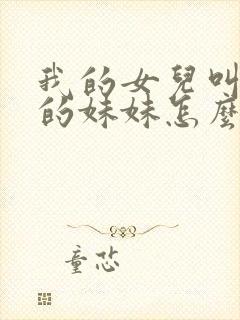 我的女兒叫
的妹妹怎麼
童恐